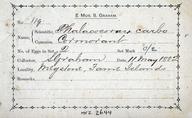 E. MOSS. B. GRAHAM.
No. 119.
Scientific, Phalacrocorax carbo
Common, Cormorant
No. of Eggs in Set 2 Set Mark 3/2
Collector, Graham Date, 11 May 1882
Locality, Megstone, Farne Islands